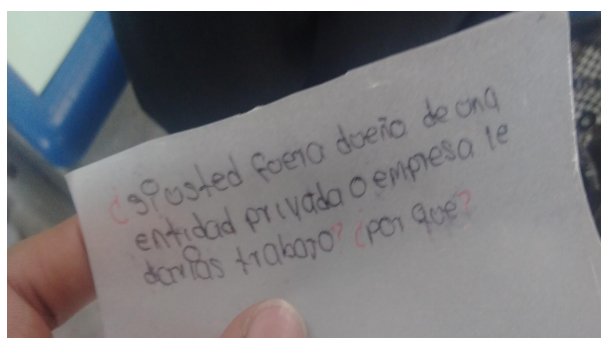 ¿si usted fuera dueño de una
entidad privada o empresa le
darias trabajo? ¿por que?